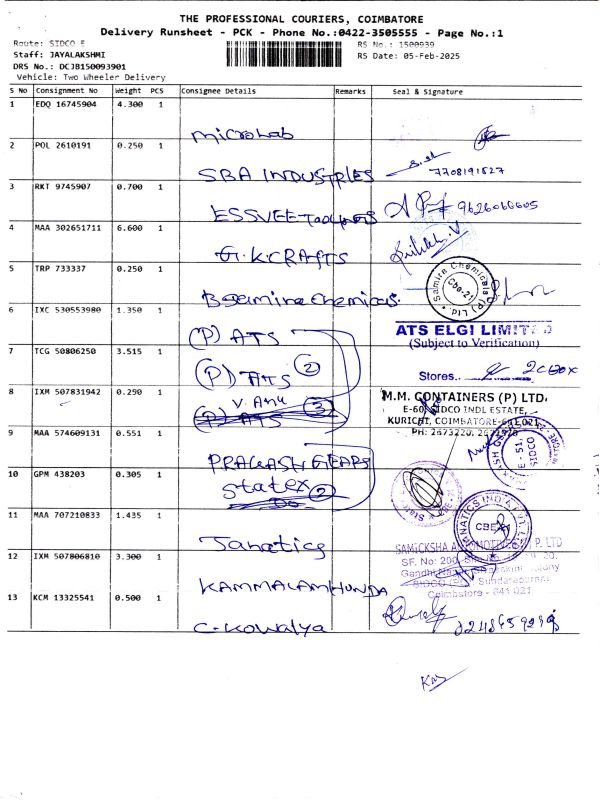 THE PROFESSIONAL COURIERS, COIMBATORE
Delivery Runsheet - PCK - Phone No.:0422-3505555 - Page No.:1
Route: SIDCO E
RS No.: 1500939
Staff: JAYALAKSHMI
RS Date: 05-Feb-2025
DRS No.: DCJB150093901
Vehicle: Two Wheeler Delivery
S No Consignment No Weight PCS Consignee Details Remarks Seal & Signature
1 EDQ 16745904 4.300 1
microlab
2 POL 2610191 0.250 1
SBA INDUSTRIES
7708191527
3 RKT 9745907 0.700 1
ESSVEE
9626066605
4 MAA 302651711 6.600 1
G.K CRAFTS
5 TRP 733337 0.250 1
Samira Chemicals (P) Ltd
Cbe-21
6 IXC 530553980 1.350 1
(P) ATS
ATS ELGI LIMITED
(Subject to Verification)
7 TCG 50806250 3.515 1
(P) ATS (2)
Stores..
8 IXM 507831942 0.290 1
(P) ATS
M.M. CONTAINERS (P) LTD.
E-60, SIDCO INDL ESTATE,
KURICHI, COIMBATORE-641 021
9 MAA 574609131 0.551 1
PRAKASH GEARS
10 GPM 438203 0.305 1
Statex (2)
11 MAA 707210833 1.435 1
Janatics
12 IXM 507806810 3.300 1
KAMMALAM HUNDA
Coimbatore - 641 021
13 KCM 13325541 0.500 1
C-Kowalya